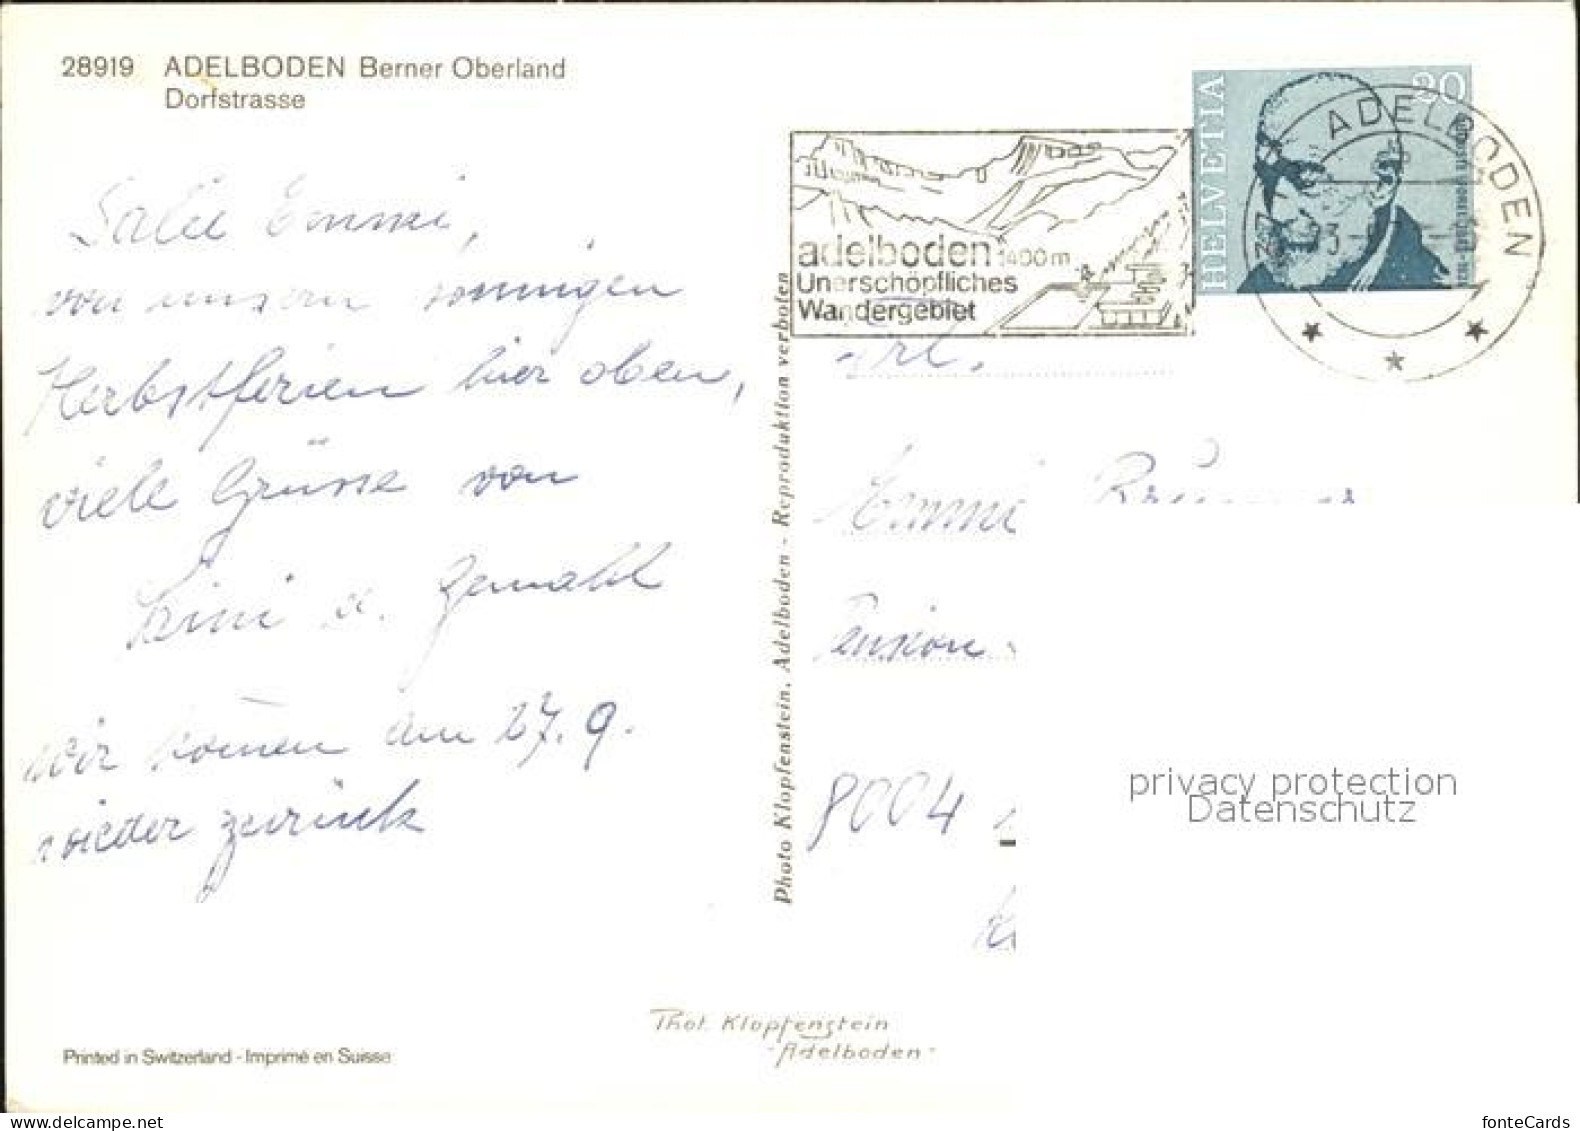 28919 ADELBODEN Berner Oberland
Dorfstrasse
Salü Emmi,
von unsern sonnigen
Herbstferien hier oben,
viele Grüsse von
u. Gemahl
Wir komen am 27.9.
wieder zurück
Printed in Switzerland - Imprimé en Suisse
Photo Klopfenstein, Adelboden - Reproduktion verboten
Phot. Klopfenstein
- Adelboden -
adelboden 1400 m
Unerschöpfliches
Wandergebiet
HELVETIA
20
ADELBODEN
Frl.
Emmi
Pension
8004
privacy protection
Datenschutz
fonteCards